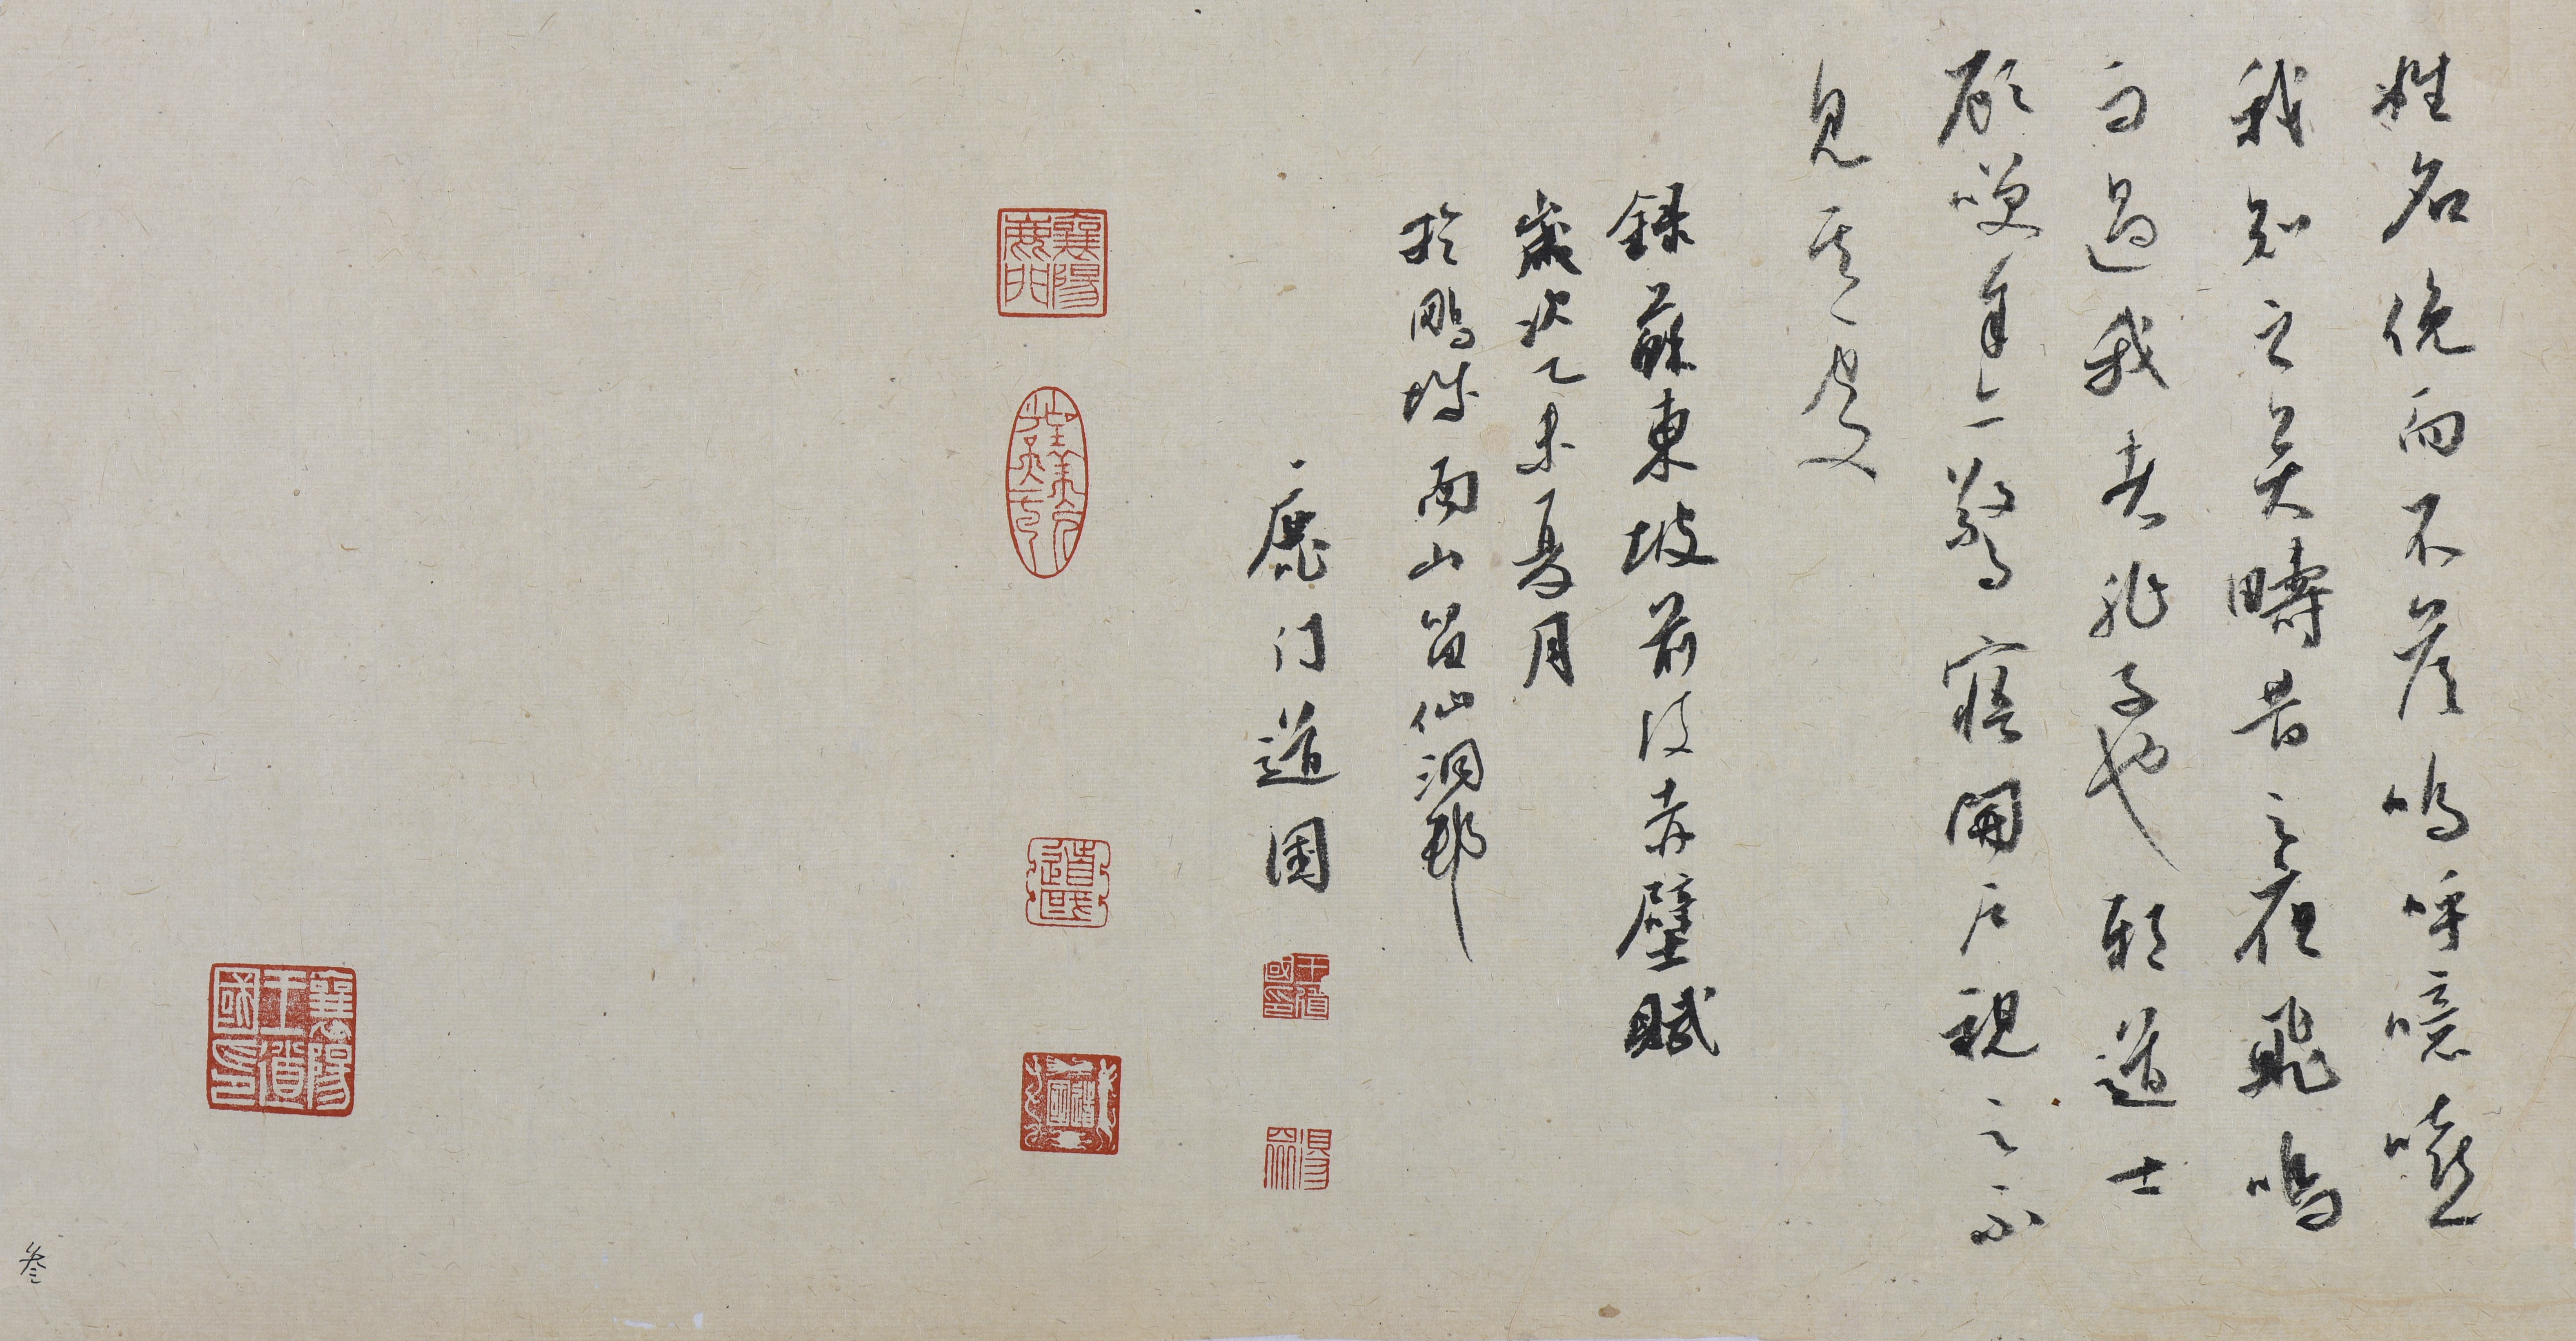 姓名俛而不答嗚呼噫嘻
我知之矣疇昔之夜飛鳴
而過我者非子也耶道士
顧笑余亦驚寤開户視之不
見其處
録蘇東坡前後赤壁賦
歲次乙未夏月
於鵬城南山留仙洞邨
鹿门道國
襄陽鹿門
道國
王道國印
襄陽王道國印
叁